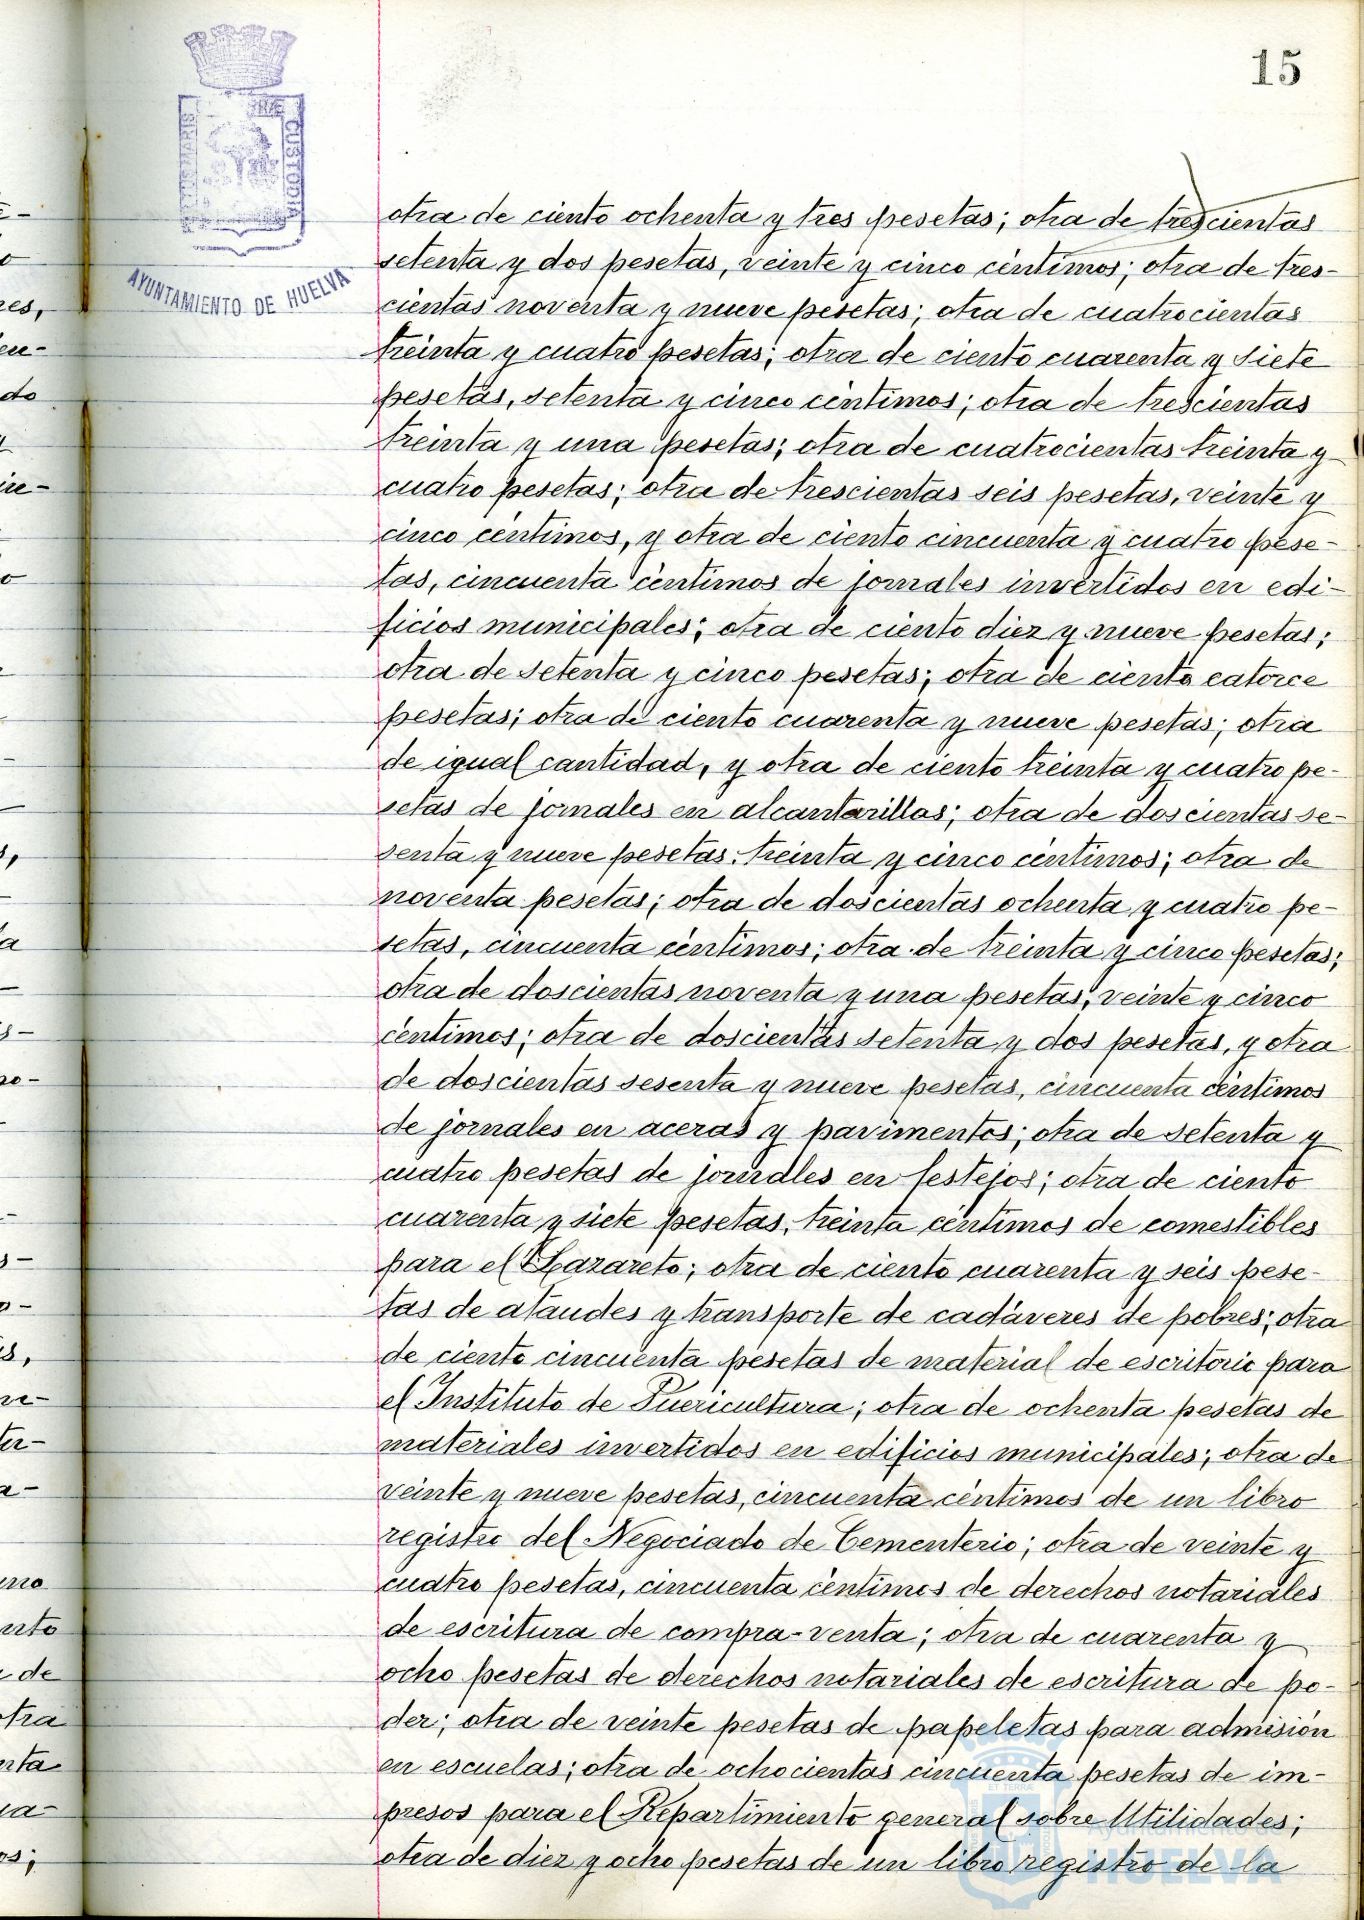 15
PORTUS MARIS ET TERRÆ CUSTODIA
AYUNTAMIENTO DE HUELVA
otra de ciento ochenta y tres pesetas; otra de trescientas
setenta y dos pesetas, veinte y cinco céntimos; otra de tres-
cientas noventa y nueve pesetas; otra de cuatrocientas
treinta y cuatro pesetas; otra de ciento cuarenta y siete
pesetas, setenta y cinco céntimos; otra de trescientas
treinta y una pesetas; otra de cuatrocientas treinta y
cuatro pesetas; otra de trescientas seis pesetas, veinte y
cinco céntimos, y otra de ciento cincuenta y cuatro pese-
tas, cincuenta céntimos de jornales invertidos en edi-
ficios municipales; otra de ciento diez y nueve pesetas;
otra de setenta y cinco pesetas; otra de ciento catorce
pesetas; otra de ciento cuarenta y nueve pesetas; otra
de igual cantidad, y otra de ciento treinta y cuatro pe-
setas de jornales en alcantarillas; otra de doscientas se-
senta y nueve pesetas, treinta y cinco céntimos; otra de
noventa pesetas; otra de doscientas ochenta y cuatro pe-
setas, cincuenta céntimos; otra de treinta y cinco pesetas;
otra de doscientas noventa y una pesetas, veinte y cinco
céntimos; otra de doscientas setenta y dos pesetas, y otra
de doscientas sesenta y nueve pesetas, cincuenta céntimos
de jornales en aceras y pavimentos; otra de setenta y
cuatro pesetas de jornales en festejos; otra de ciento
cuarenta y siete pesetas, treinta céntimos de comestibles
para el Lazareto; otra de ciento cuarenta y seis pese-
tas de ataudes y transporte de cadáveres de pobres; otra
de ciento cincuenta pesetas de material de escritorio para
el Instituto de Puericultura; otra de ochenta pesetas de
materiales invertidos en edificios municipales; otra de
veinte y nueve pesetas, cincuenta céntimos de un libro
registro del Negociado de Cementerio; otra de veinte y
cuatro pesetas, cincuenta céntimos de derechos notariales
de escritura de compra-venta; otra de cuarenta y
ocho pesetas de derechos notariales de escritura de po-
der; otra de veinte pesetas de papeletas para admisión
en escuelas; otra de ochocientas cincuenta pesetas de im-
presos para el Repartimiento general sobre Utilidades;
otra de diez y ocho pesetas de un libro registro de la
Ayuntamiento de
HUELVA